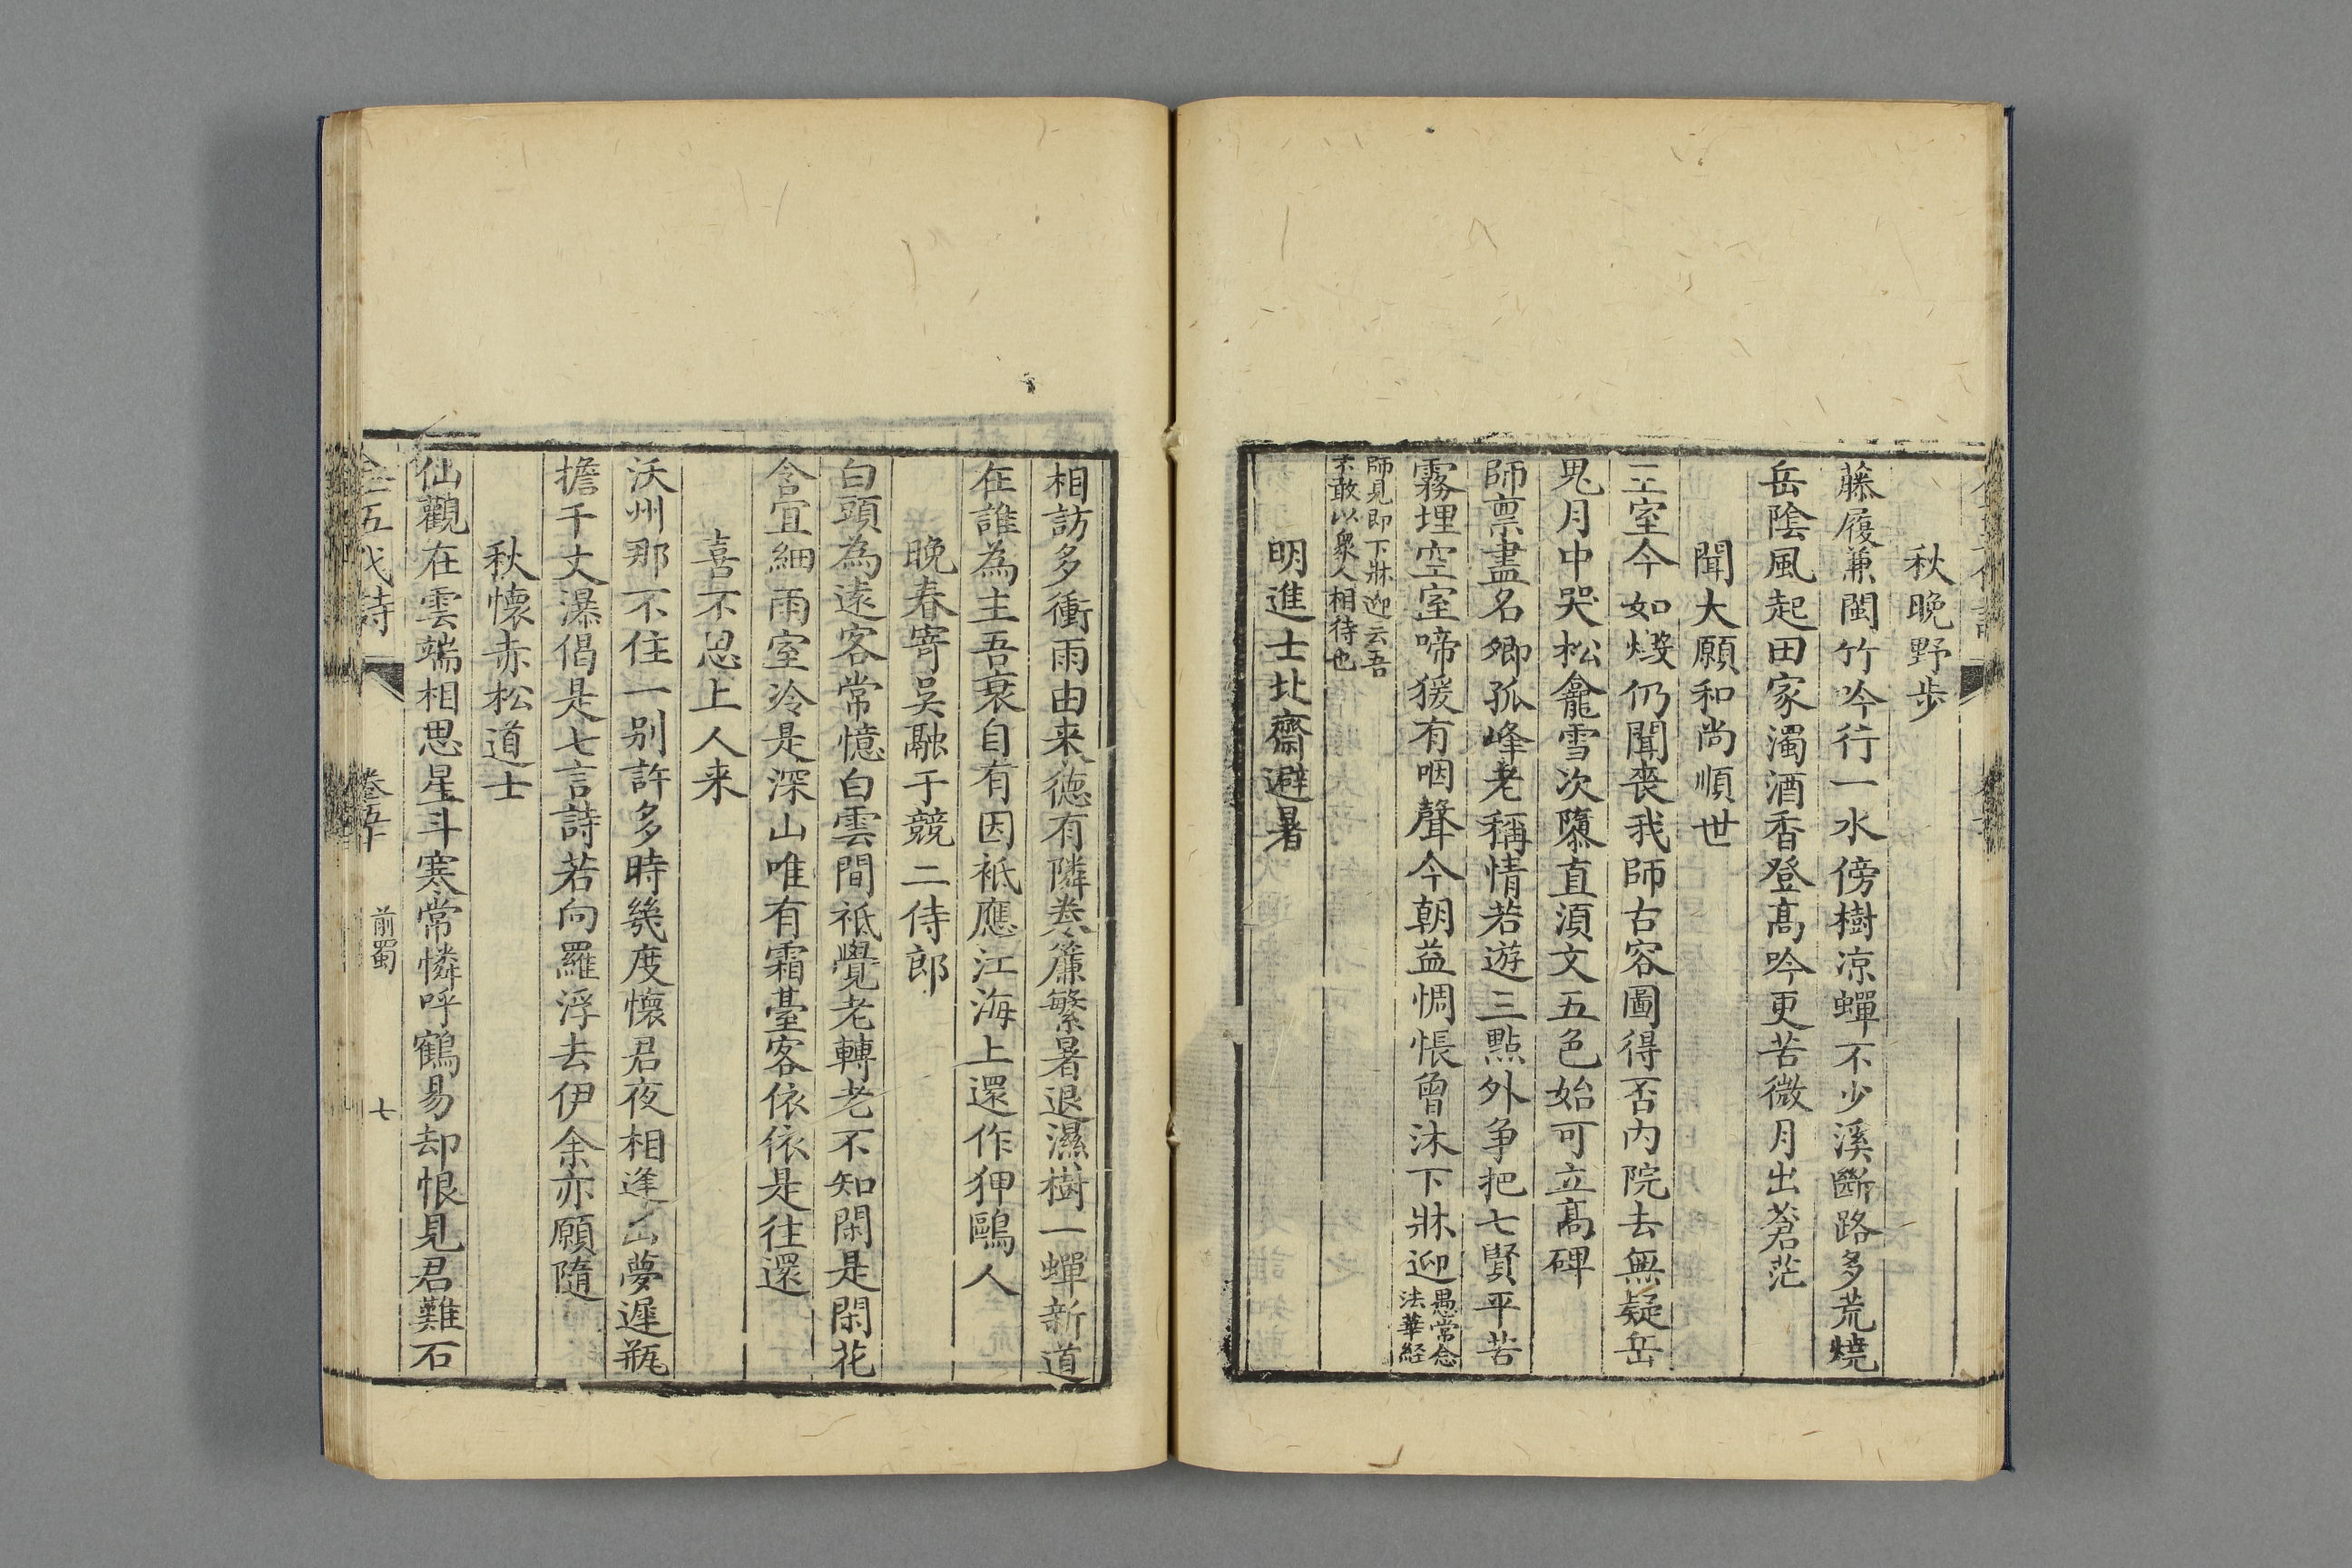 秋晚野步
藤履兼閩竹吟行一水傍樹凉蟬不少溪斷路多荒燒
岳陰風起田家濁酒香登高吟更苦微月出蒼茫
聞大願和尚順世
王室今如燬仍聞喪我師古容圖得否内院去無疑岳
鬼月中哭松龕雪次隳直湏文五色始可立高碑
師禀盡名卿孤峰老稱情若遊三點外争把七賢平苦
霧埋空室啼猨有咽聲今朝益惆悵曾沐下牀迎愚常念法華経
師見即下牀迎云吾不敢以衆人相待也
明進士北齋避暑
相訪多衝雨由来德有隣卷簾繁暑退濕樹一蟬新道
在誰為主吾衰自有因祗應江海上還作狎鷗人
晚春寄吳融于競二侍郎
白頭為遠客常憶白雲間祗覺老轉老不知閑是閑花
含宜細雨室冷是深山唯有霜臺客依依是往還
喜不思上人来
沃州那不住一别許多時幾度懷君夜相逢出夢遲瓶
擔千丈瀑偈是七言詩若向羅浮去伊余亦願隨
秋懷赤松道士
仙觀在雲端相思星斗寒常憐呼鶴易却恨見君難石
全五代詩 卷五十 前蜀 七